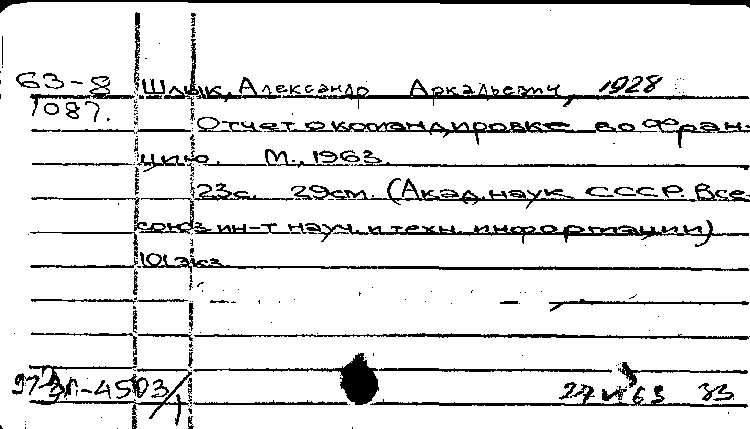 63-8 Шлык, Александр Аркадьевич, 1928
1087.
Отчет о командировке во Фран-
цию. М., 1963.
23с. 29см. (Акад. наук СССР. Все-
союз ин-т науч. и техн. информации)
101 экз.
33